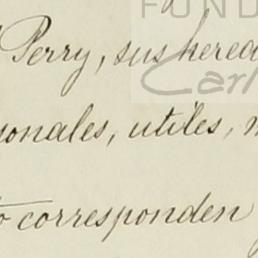 FUND
Perry, sus hered
Carl
sonales, utiles,
to corresponden